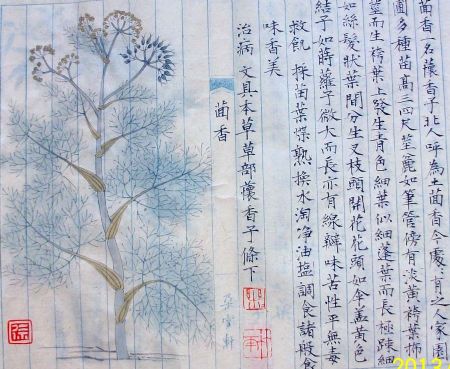 茴香一名蘹香子北人呼為土茴香今處:有之人家園
圃多種苗高三四尺莖麄如筆管傍有淡黃袴葉抪
莖而生袴葉上發生青色細葉似細蓬葉而長極疎細
如絲髮狀葉間分生叉枝頭開花花頭如傘蓋黃色
結子如蒔蘿子微大而長亦有線瓣味苦性平無毒
救飢 採苗葉煠熟換水淘淨油塩調食諸般食
味香美
治病 文具本草草部蘹香子條下
茴香
2013